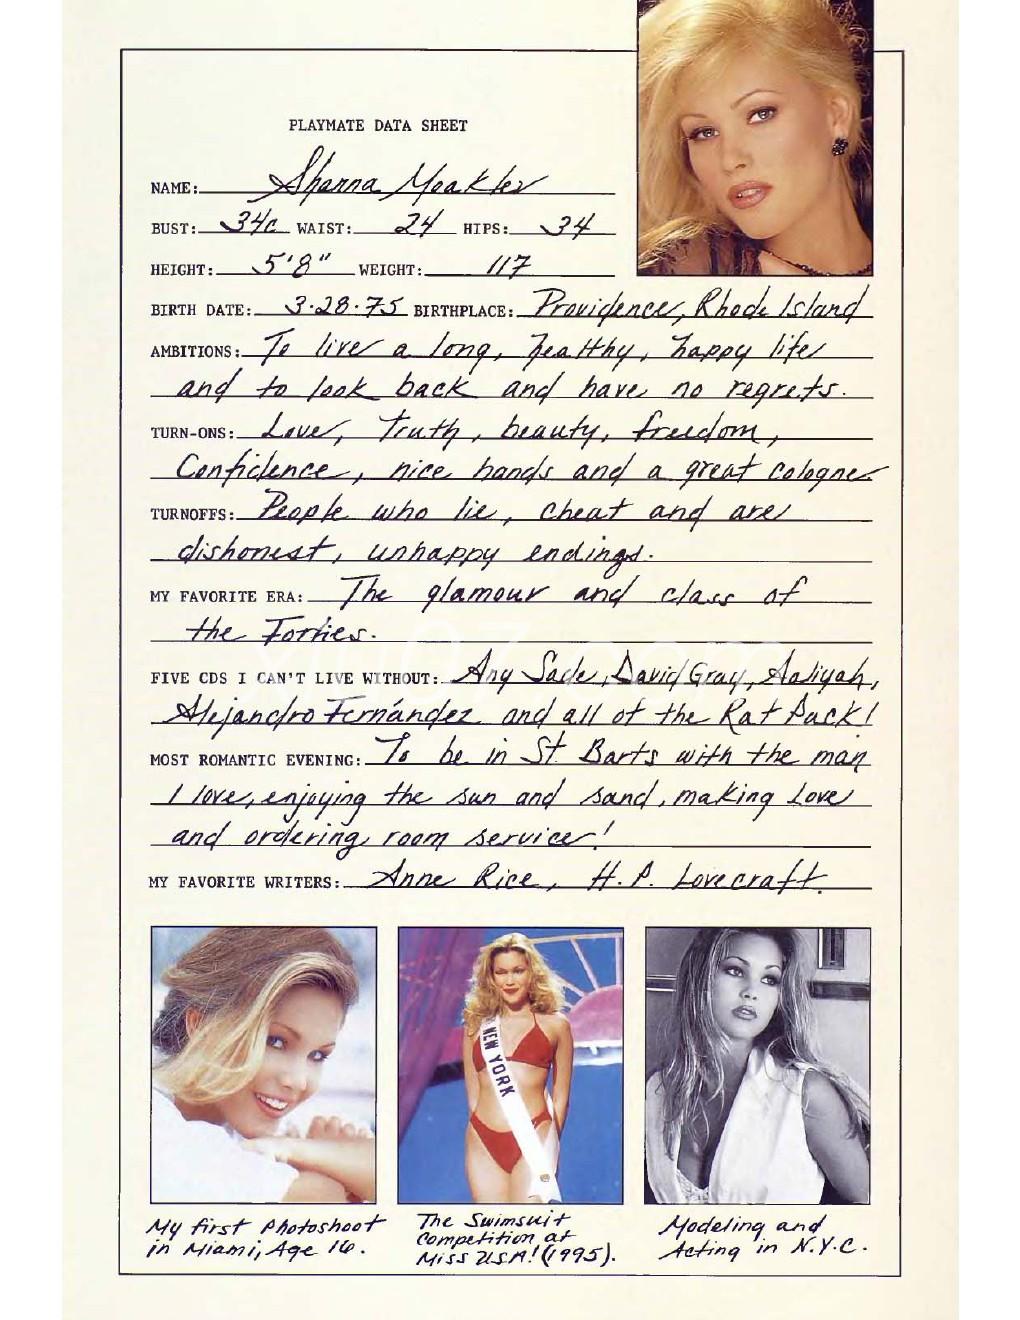 PLAYMATE DATA SHEET
NAME: Shanna Moakler
BUST: 34C WAIST: 24 HIPS: 34
HEIGHT: 5'8" WEIGHT: 117
BIRTH DATE: 3-28-75 BIRTHPLACE: Providence, Rhode Island
AMBITIONS: To live a long, healthy, happy life
and to look back and have no regrets.
TURN-ONS: Love, Truth, beauty, freedom,
Confidence, nice hands and a great cologne.
TURNOFFS: People who lie, cheat and are
dishonest, unhappy endings.
MY FAVORITE ERA: The glamour and class of
the Forties.
FIVE CDS I CAN'T LIVE WITHOUT: Any Sade, David Gray, Aaliyah,
Alejandro Fernández and all of the Rat Pack!
MOST ROMANTIC EVENING: To be in St. Barts with the man
I love, enjoying the sun and sand, making Love
and ordering room service!
MY FAVORITE WRITERS: Anne Rice, H.P. Lovecraft.
NEW YORK
My first Photoshoot
in Miami, Age 16.
The Swimsuit
Competition at
Miss USA! (1995).
Modeling and
Acting in N.Y.C.